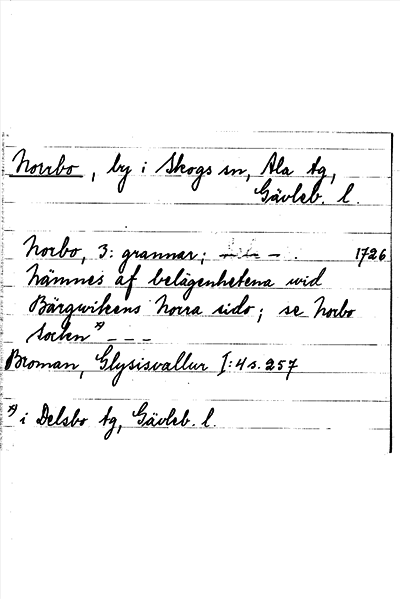 Norrbo, by i Skogs sn, Ala tg,
Gävleb. l.
Norbo, 3: grannar; — — . 1726
nämnes af belägenhetena wid
Bärgwikens Norra sido; se Norbo
socken *) — — —
Broman, Glysisvallur I:4 s. 257
*) i Delsbo tg, Gävleb. l.